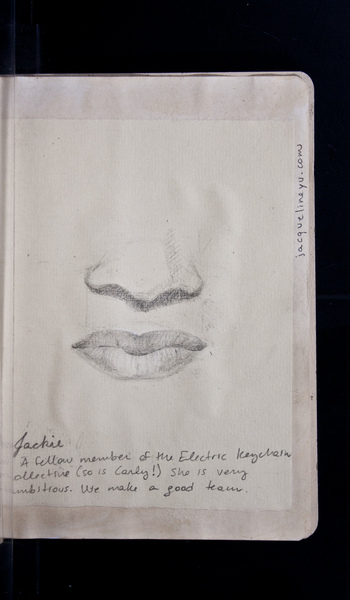 jacquelineyu.com
Jackie
A fellow member of the Electric Keychain
ollective (so is Carly!) She is very
mbitious. We make a good team.